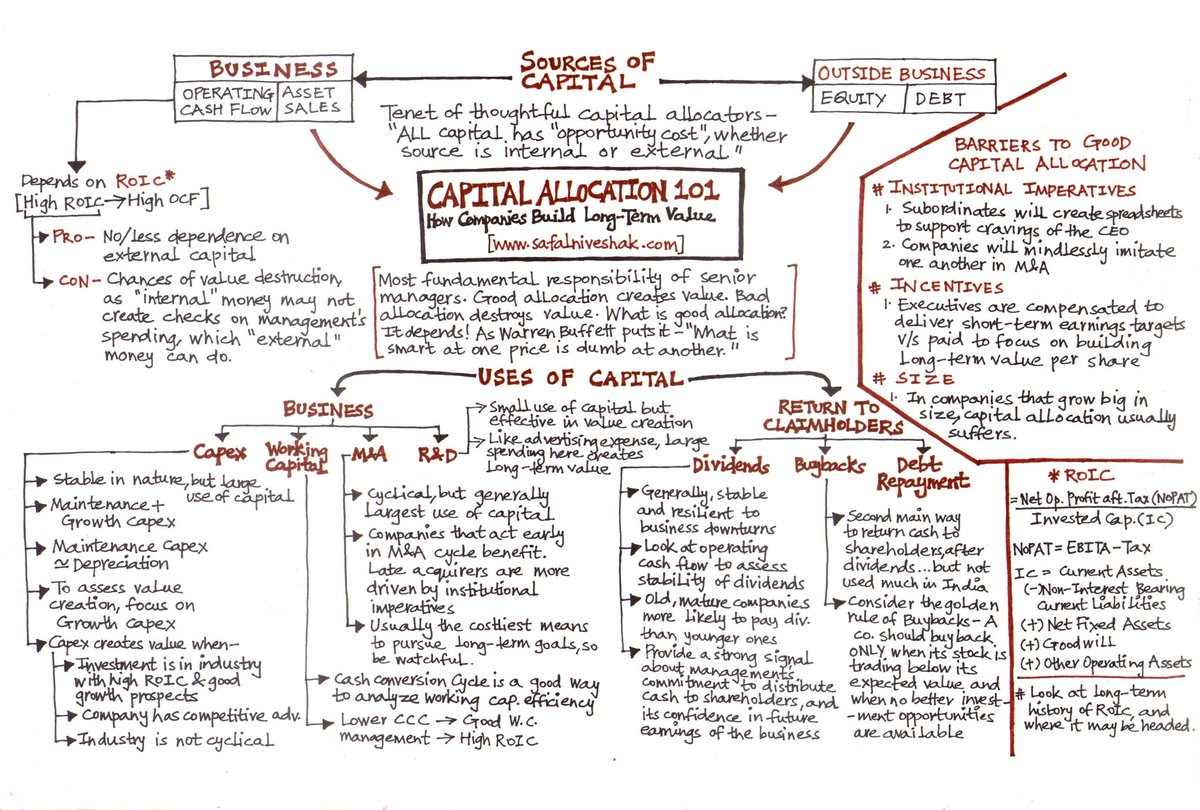 SOURCES OF
CAPITAL
BUSINESS
OPERATING
CASH FLOW
ASSET
SALES
OUTSIDE BUSINESS
EQUITY
DEBT
Tenet of thoughtful capital allocators-
"ALL capital has "opportunity cost", whether
source is internal or external"
CAPITAL ALLOCATION 101
How Companies Build Long-Term Value
[www.safalniveshak.com]
Depends on ROIC*
[High ROIC → High OCF]
PRO- No/less dependence on
external capital
CON- Chances of value destruction,
as "internal" money may not
create checks on management's
spending, which "external"
money can do.
Most fundamental responsibility of senior
managers. Good allocation creates value. Bad
allocation destroys value. What is good allocation?
It depends! As Warren Buffett puts it - "What is
smart at one price is dumb at another."
BARRIERS TO GOOD
CAPITAL ALLOCATION
# INSTITUTIONAL IMPERATIVES
1. Subordinates will create spreadsheets
to support cravings of the CEO
2. Companies will mindlessly imitate
one another in M&A
# INCENTIVES
1. Executives are compensated to
deliver short-term earnings targets
v/s paid to focus on building
Long-term value per share
# SIZE
1. In companies that grow big in
size, capital allocation usually
suffers.
USES OF CAPITAL
BUSINESS
Capex
Working
Capital
M&A
R&D
Small use of capital but
effective in value creation
Like advertising expense, large
spending here creates
Long-term value
Stable in nature, but large
use of capital
Maintenance +
Growth Capex
Maintenance Capex
≃ Depreciation
To assess value
creation, focus on
Growth Capex
Capex creates value when-
Investment is in industry
with high ROIC & good
growth prospects
Company has competitive adv.
Industry is not cyclical
Cyclical, but generally
Largest use of capital
Companies that act early
in M&A cycle benefit.
Late acquirers are more
driven by institutional
imperatives
Usually the costliest means
to pursue Long-term goals, so
be watchful.
Cash conversion Cycle is a good way
to analyze working cap. efficiency
Lower CCC → Good W.C.
management → High ROIC
RETURN TO
CLAIMHOLDERS
Dividends
Buybacks
Debt
Repayment
Generally, stable
and resilient to
business downturns
Look at operating
cash flow to assess
stability of dividends
Old, mature companies
more likely to pay div.
than younger ones
Provide a strong signal
about management's
commitment to distribute
cash to shareholders, and
its confidence in future
earnings of the business
Second main way
to return cash to
shareholders, after
dividends...but not
used much in India
Consider the golden
rule of Buybacks - A
co. should buy back
ONLY when its stock is
trading below its
expected value and
when no better invest-
-ment opportunities
are available
* ROIC
= Net Op. Profit aft. Tax (NOPAT)
Invested Cap. (IC)
NOPAT = EBITA-Tax
IC = Current Assets
(-) Non-Interest Bearing
Current Liabilities
(+) Net Fixed Assets
(+) Goodwill
(+) Other Operating Assets
# Look at Long-term
history of ROIC, and
where it may be headed.